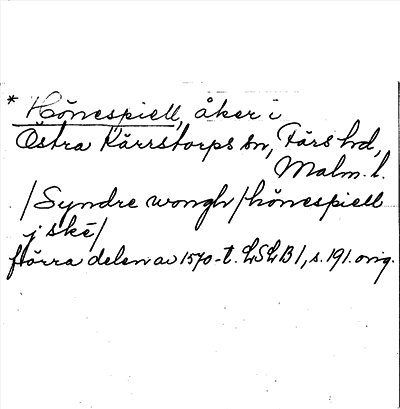 * Hönespiell, åker i
Östra Kärrstorps sn, Färs hd,
Malm. l.
/Syndre wongh/hönespiell
j ské/
förra delen av 1570-t. LSLB1, s. 191. orig.